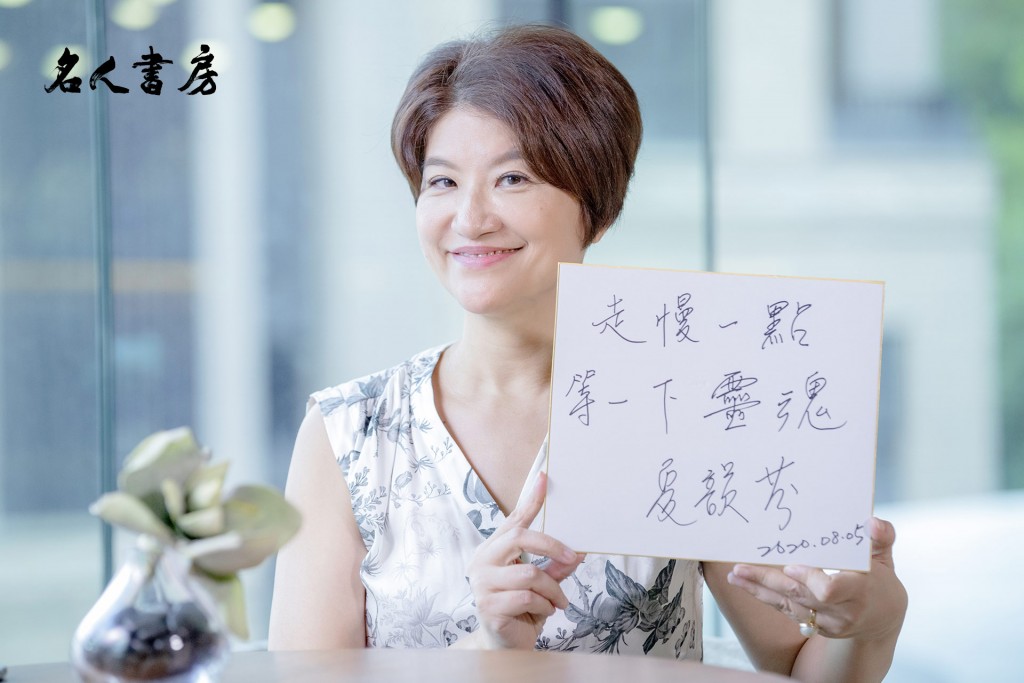 名人書房
走慢一點
等一下靈魂
夏韻芬
2020.08.05